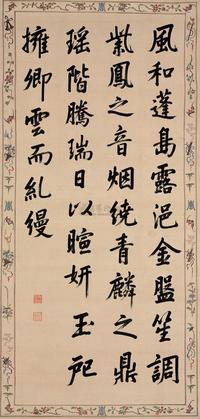 風和蓬島露浥金盤笙調
紫鳳之音烟繞青麟之鼎
瑶階騰瑞日以暄妍玉戺
擁卿雲而糺縵